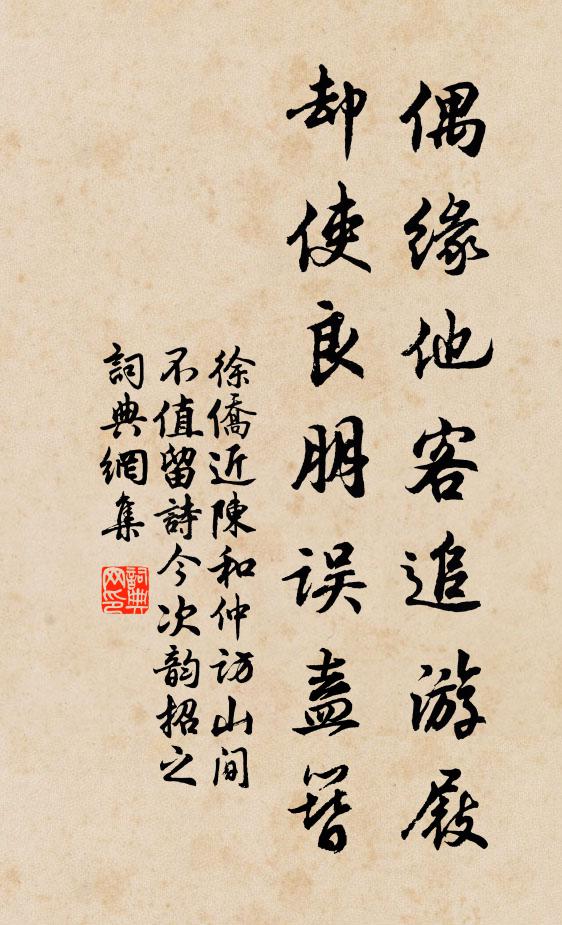 偶缘他客追游屐
却使良朋误盍簪
徐僑近陳和仲訪山间
不值留詩今次韵招之
詞典網集
詞典
网印